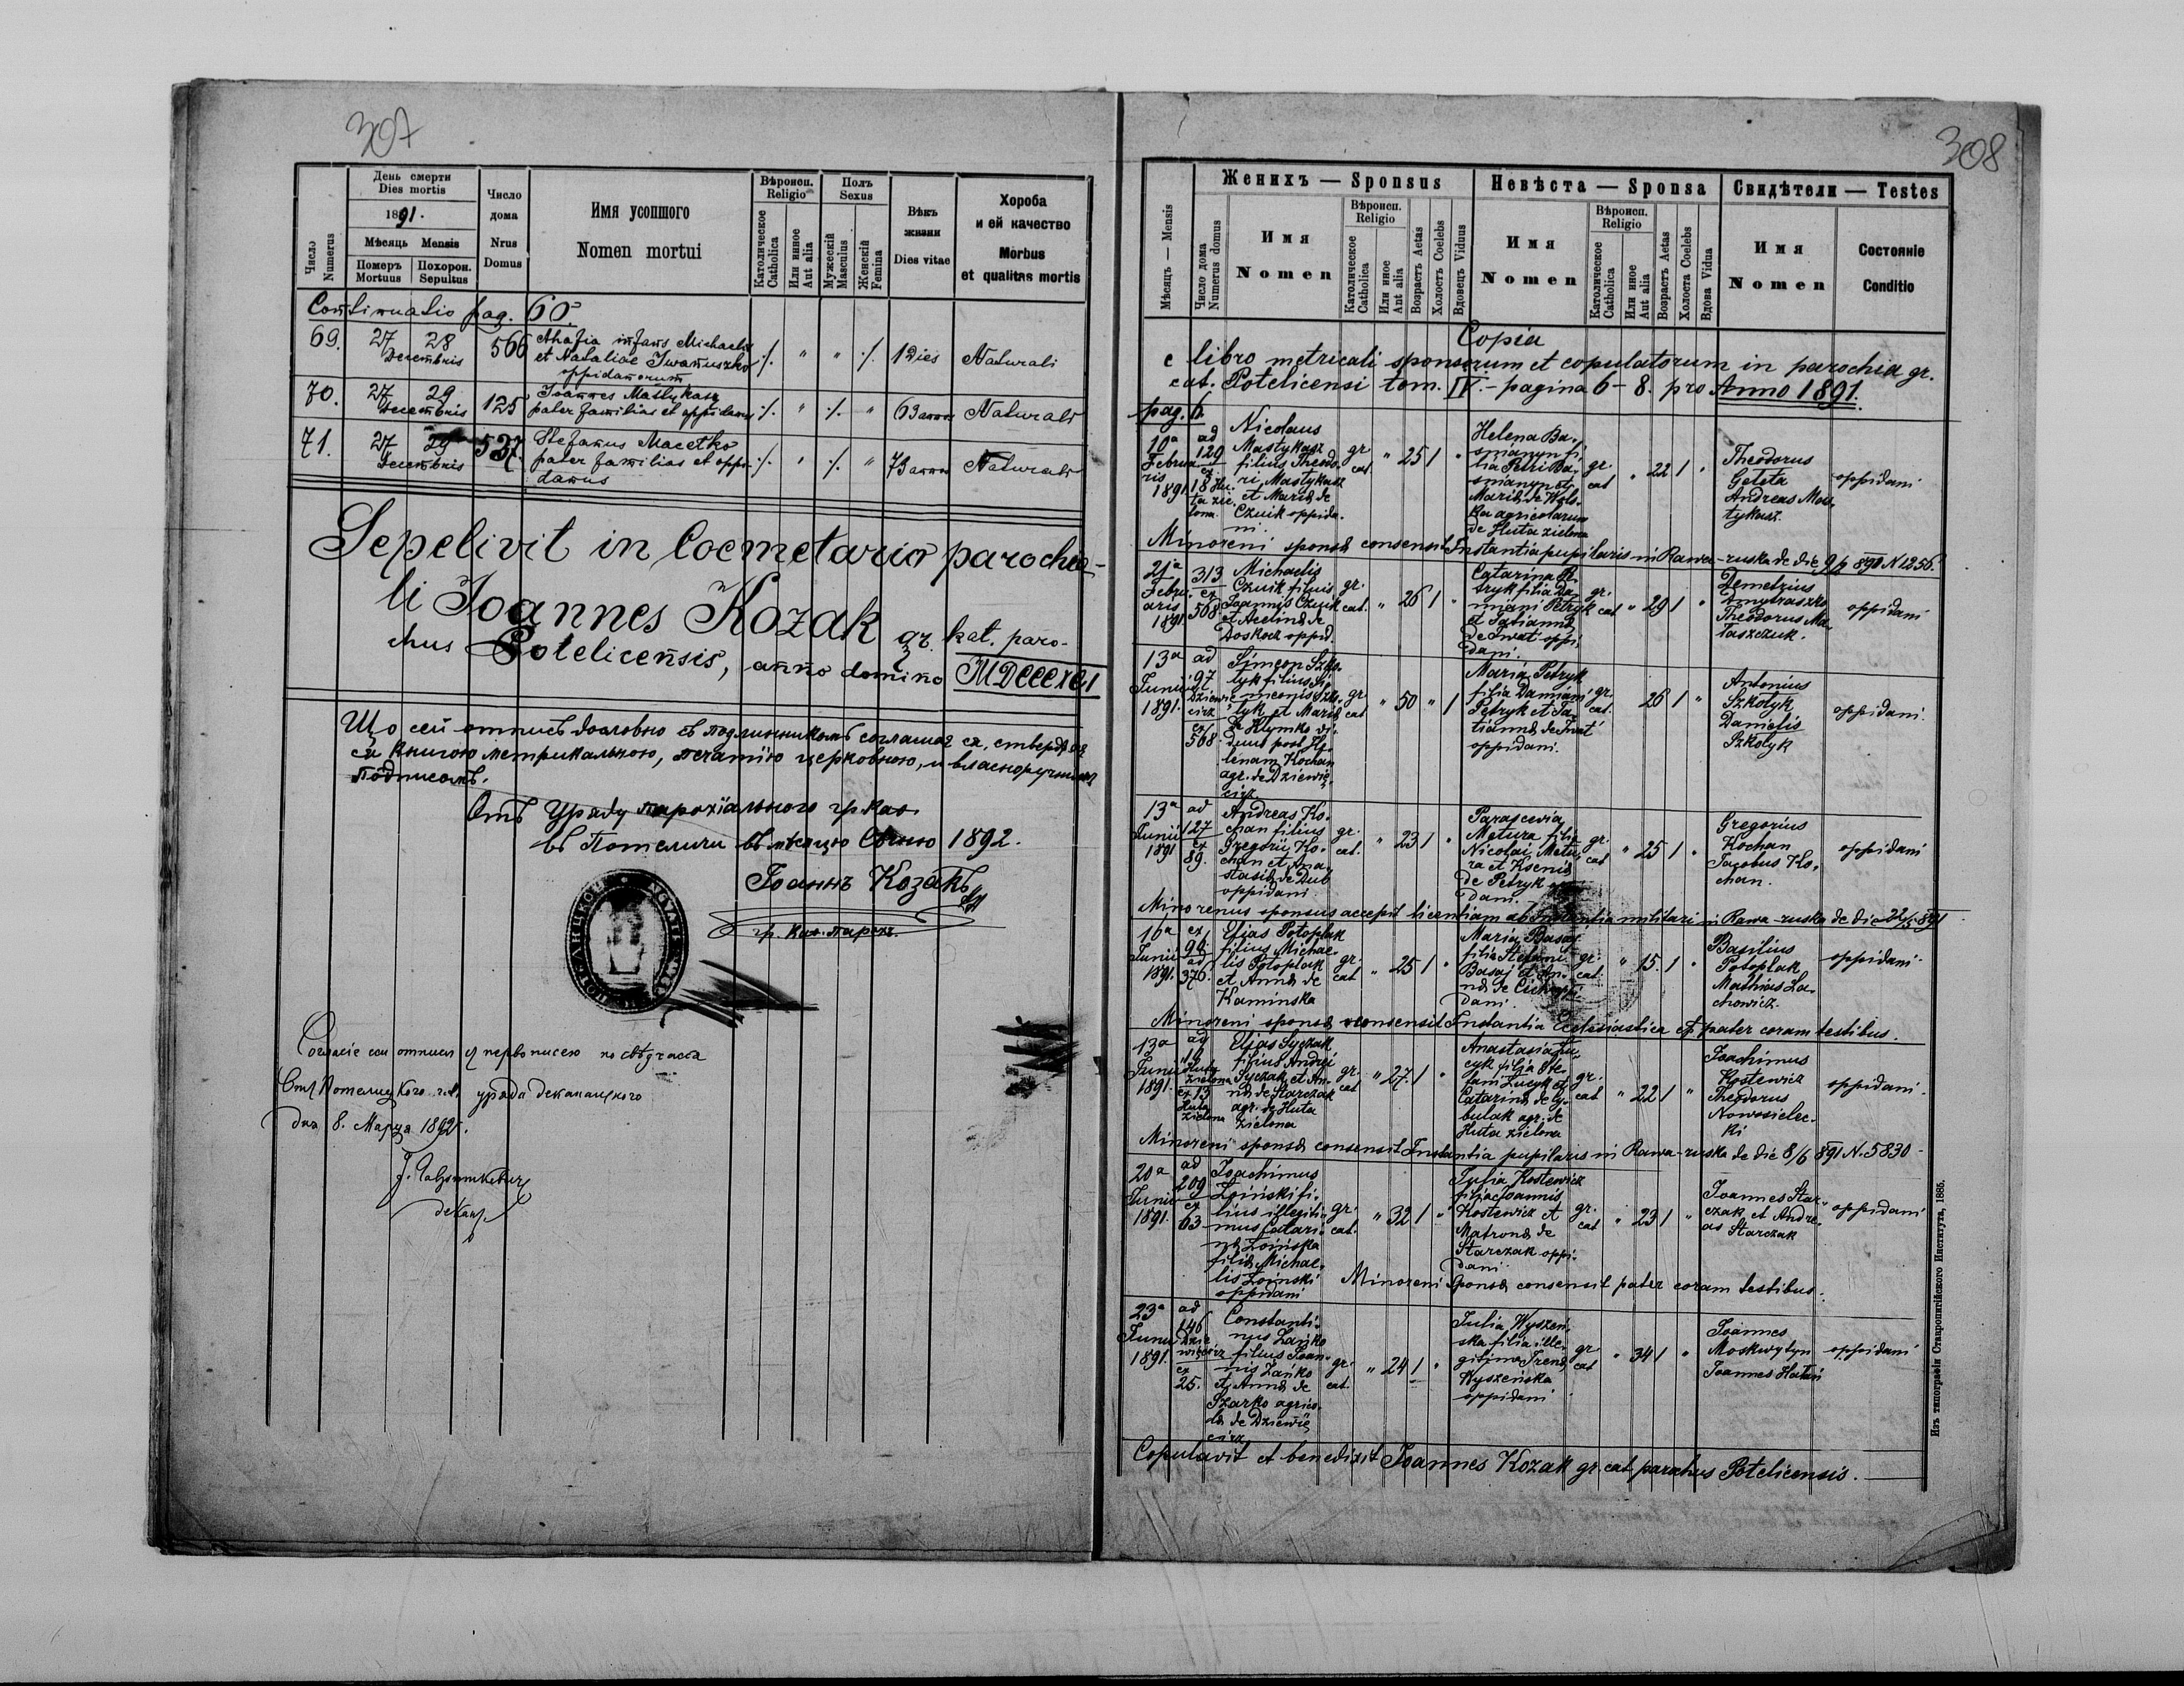 307
День смерти
Dies mortis
1891.
Мѣсяць Mensis
Померъ Mortuus
Похорон. Sepultus
Число Numerus
Число дома
Nrus Domus
Имя усопшого
Nomen mortui
Вѣроисп.
Religio
Католическое Catholica
Или инное Aut alia
Полъ
Sexus
Мужескій Masculus
Женскій Femina
Вѣкъ жизни
Dies vitae
Хороба
и ей качество
Morbus
et qualitas mortis
Continuatio pag. 60.
69. 27 28 Decembris 566 Ahafia infans Michaelis ·/. " " ·/. 1 Dies Naturali
et Nataliae Iwanuszko
oppidanorum
70. 27 29 Decembris 125 Joannes Mastykasz ·/. " ·/. " 63 anno Naturali
pater familias et oppidanus
71. 27 29 Decembris 537. Stefanus Macetko ·/. " ·/. " 73 anno Naturali
pater familias et oppi-
danus
Sepelivit in Coemetario parochia-
li Joannes Kozak gr. kat. paro-
chus Potelicensis, anno domino MDCCCXCI
Що сей отписъ дословно съ подлинникомъ согласоє ся, ствердяє
ся книгою метрикальною, печатію церковною, и власноручнымъ
подписомъ.
Отъ Уряду парохіального гр. кат.
въ Потеличи въ мѣсяцю Сѣчню 1892.
Іоаннъ Козакъ
гр. кат. парохъ.
Согласіе сеи отписи з первописею посвѣдчаєся
Отъ Потелицкого гр. к. уряда деканацкого
дня 8. Марця 1892.
деканъ
308
Женихъ — Sponsus
Невѣста — Sponsa
Свидѣтели — Testes
Мѣсяцъ — Mensis
Число дома Numerus domus
Имя
Nomen
Вѣроисп.
Religio
Католическое Catholica
Или инное Aut alia
Возрастъ Aetas
Холостъ Coelebs
Вдовецъ Viduus
Имя
Nomen
Вѣроисп.
Religio
Католическое Catholica
Или инное Aut alia
Возрастъ Aetas
Холоста Coelebs
Вдова Vidua
Имя
Nomen
Состояніе
Conditio
Copia
e libro metricali sponsorum et copulatorum in parochia gr.
cat. Potelicensi tom. IV. - pagina 6 - 8. pro Anno 1891.
pag. 6.
10a Februaris 1891
ad 129 ex 18 Huta zielona
Nicolaus
Mastykasz
filius Theodo-
ri Mastykasz
et Mariae de
Czuik oppida-
ni.
gr. cat " 25 1 "
Helena Ba-
smanyn fi-
lia Petri Ba-
smanyn et
Mariae de Wols-
ka agricolarum
de Huta zielona
gr. cat " 22 1 "
Theodorus
Geteta
Andreas Mas-
tykasz.
oppidani
Minoreni sponsae consensit Instantia pupilaris in Rawa-ruska de die 9/2 891 N 1256.
21a Februaris 1891
313 ex 568.
Michaelis
Czuik filius
Joannis Czuik
et Acelinae de
Doskocz oppid.
gr. cat. " 26 1 "
Catarina Pe-
tryk filia Da-
miani Petryk
et Tatiannae
de Iwat oppi-
dani.
gr. cat " 29 1 "
Demetrius
Dmytraszko
Theodorus Ma-
taszczuk.
oppidani
13a Junii 1891.
ad 97 Dziewiecirz ex 568
Simeon Szko-
lyk filius Si-
meonis Szko-
lyk et Mariae
de Klymko vi-
duus post He-
lenam Kochan
agr. de Dziewie-
cirz.
gr. cat " 50 " 1
Maria Petryk
filia Damiani
Petryk et Ta-
tiannae de Iwat
oppidani.
gr. cat. 26 1 "
Antonius
Szkolyk
Danielis
Szkolyk
oppidani.
13a Junii 1891
ad 127 ex 89.
Andreas Ko-
chan filius
Gregorii Ko-
chan et Ana-
stasiae de Dub
oppidani
gr. cat. " 23 1 "
Parascevia
Matura filia
Nicolai Matu-
ra et Kseniae
de Petryk oppi-
dani.
gr. cat " 25 1 "
Gregorius
Kochan
Jacobus Ko-
chan.
oppidani
Minorenus sponsus accepit licentiam ab Instantia militari in Rawa-ruska de die 22/5 891
16a Junii 1891.
ex 94. ad 376.
Elias Potoplak
filius Michae-
lis Potoplak
et Annae de
Kaminska
gr. cat " 25 1 "
Maria Basaj
filia Stefani
Basaj et An-
nae de Cich oppi-
dani.
gr. cat. " 15. 1 "
Basilius
Potoplak
Mathias La-
chowicz.
oppidani.
Minoreni sponsae consensit Instantia Ecclesiastica et pater coram testibus.
13a Junii 1891.
ad 19 Huta zielona ex 13 Huta zielona
Elias Syczak
filius Andrei
Syczak et An-
nae de Starczak
agr. de Huta
zielona
gr. cat " 27. 1 "
Anastasia Lu-
cyk filia Ste-
fani Lucyk et
Catarinae de Cy-
bulak agr. de
Huta zielona
gr. cat " 22 1 "
Joachimus
Kostewicz
Theodorus
Nowosielec-
ki
oppidani.
Minoreni sponsae consensit Instantia pupilaris in Rawa-ruska de die 8/6 891 N. 5830 -
20a Junii 1891.
ad 209 ex 63
Joachimus
Zoinski fi-
lius illegiti-
mus Catari-
nae Zoinska
filiae Michae-
lis Zoinski
oppidani
gr. cat. " 32 1 "
Julia Kostewicz
filia Joannis
Kostewicz et
Matronae de
Starczak oppi-
dani
gr. cat " 23 1 "
Joannes Star-
czak et Andre-
as Starczak
oppidani
Minoreni Sponsae consensit pater coram testibus.
23a Junii 1891.
ad 146 Dziewiecirz ex 25.
Constanti-
nus Zańko
filius Joan-
nis Zańko
et Annae de
Szarko agrico-
lae de Dziewie-
cirz
gr. cat. " 24 1 "
Julia Wyszen-
ska filia ille-
gitima Irenae
Wyszeńska
oppidani
gr. cat " 34 1 "
Joannes
Moskwytyn
Joannes Hatas
oppidani
Copulavit et benedixit Joannes Kozak gr. cat parochus Potelicensis.
Изъ типографіи Ставропигійского Института, 1885.